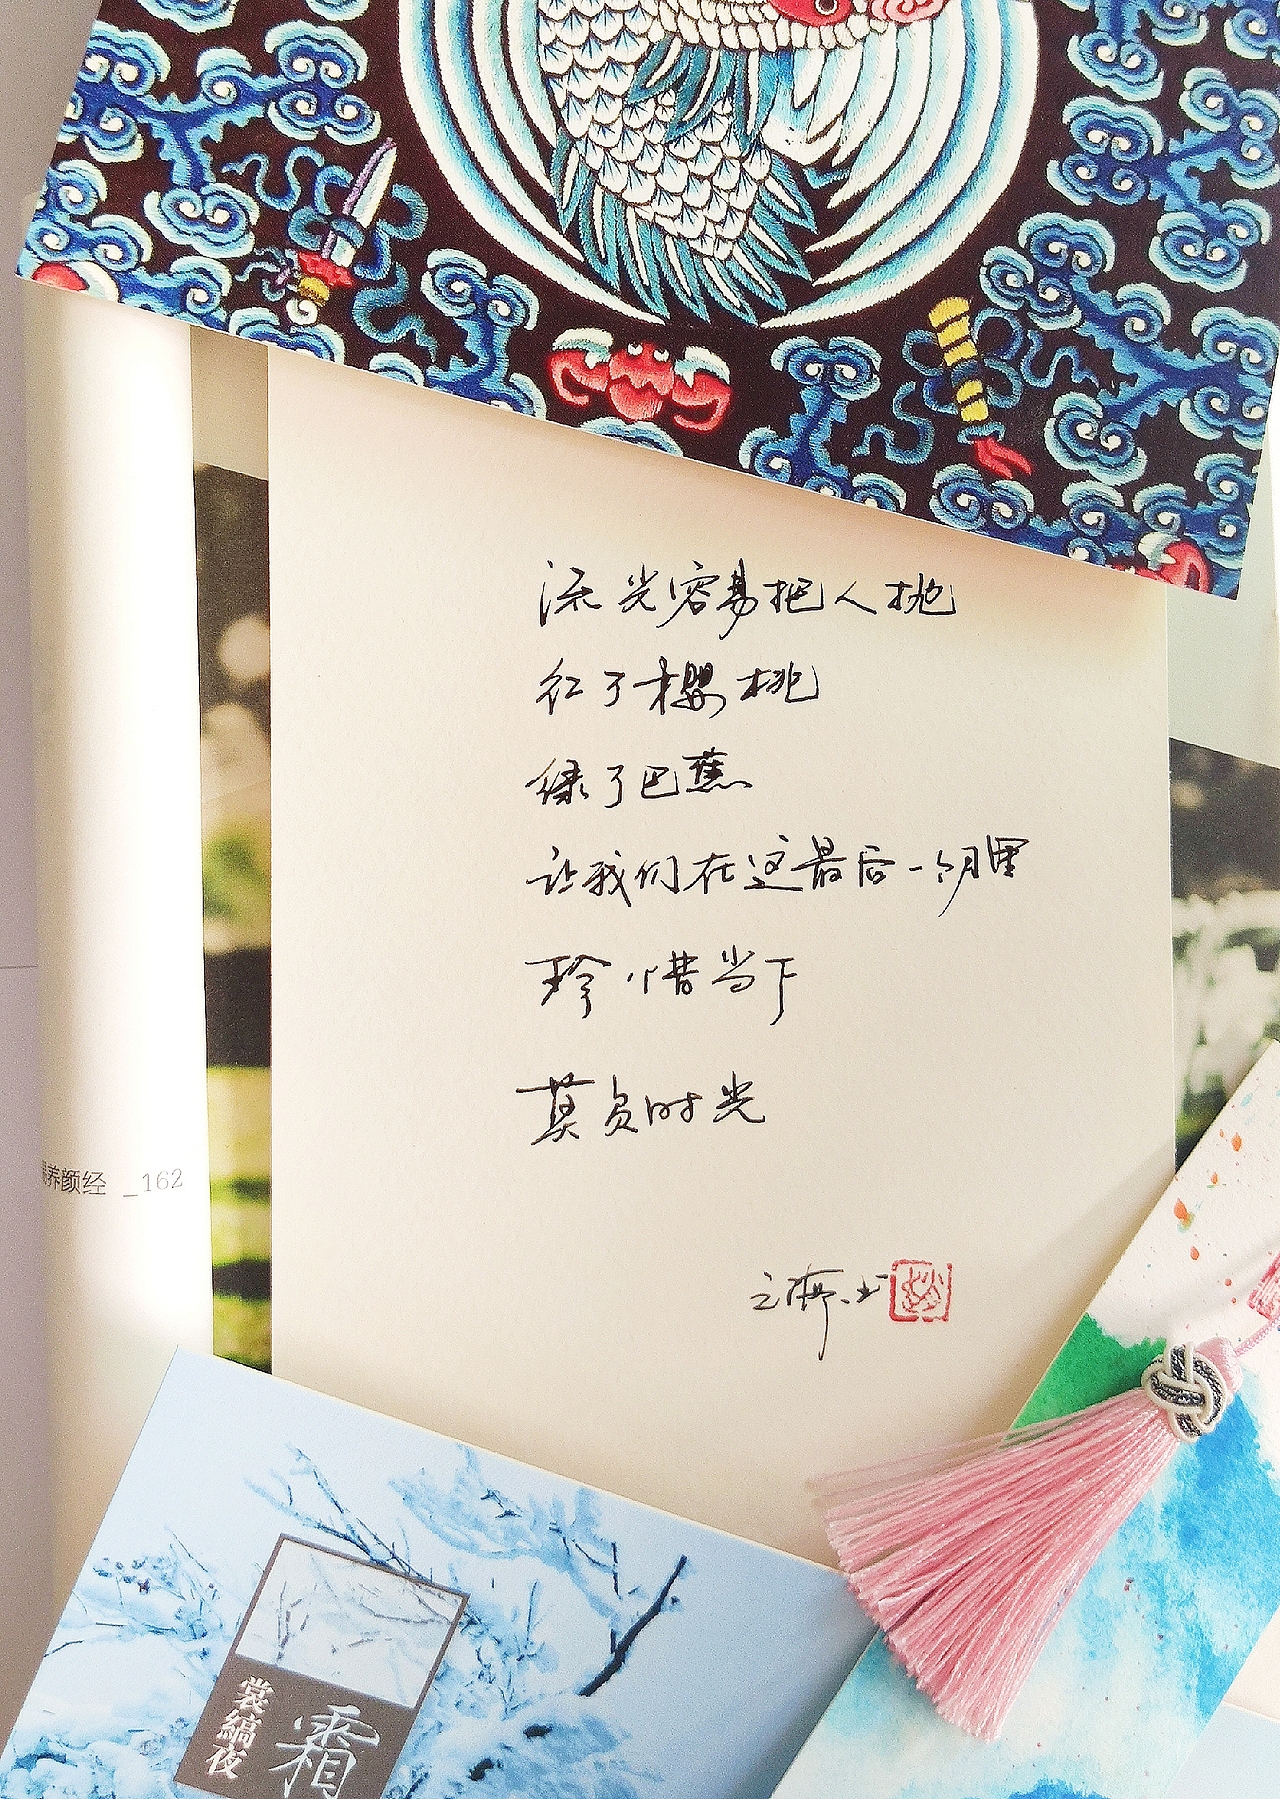 流光容易把人抛
红了樱桃
绿了芭蕉
让我们在这最后一个月里
珍惜当下
莫负时光
养颜经 _162
霜
裳缟夜